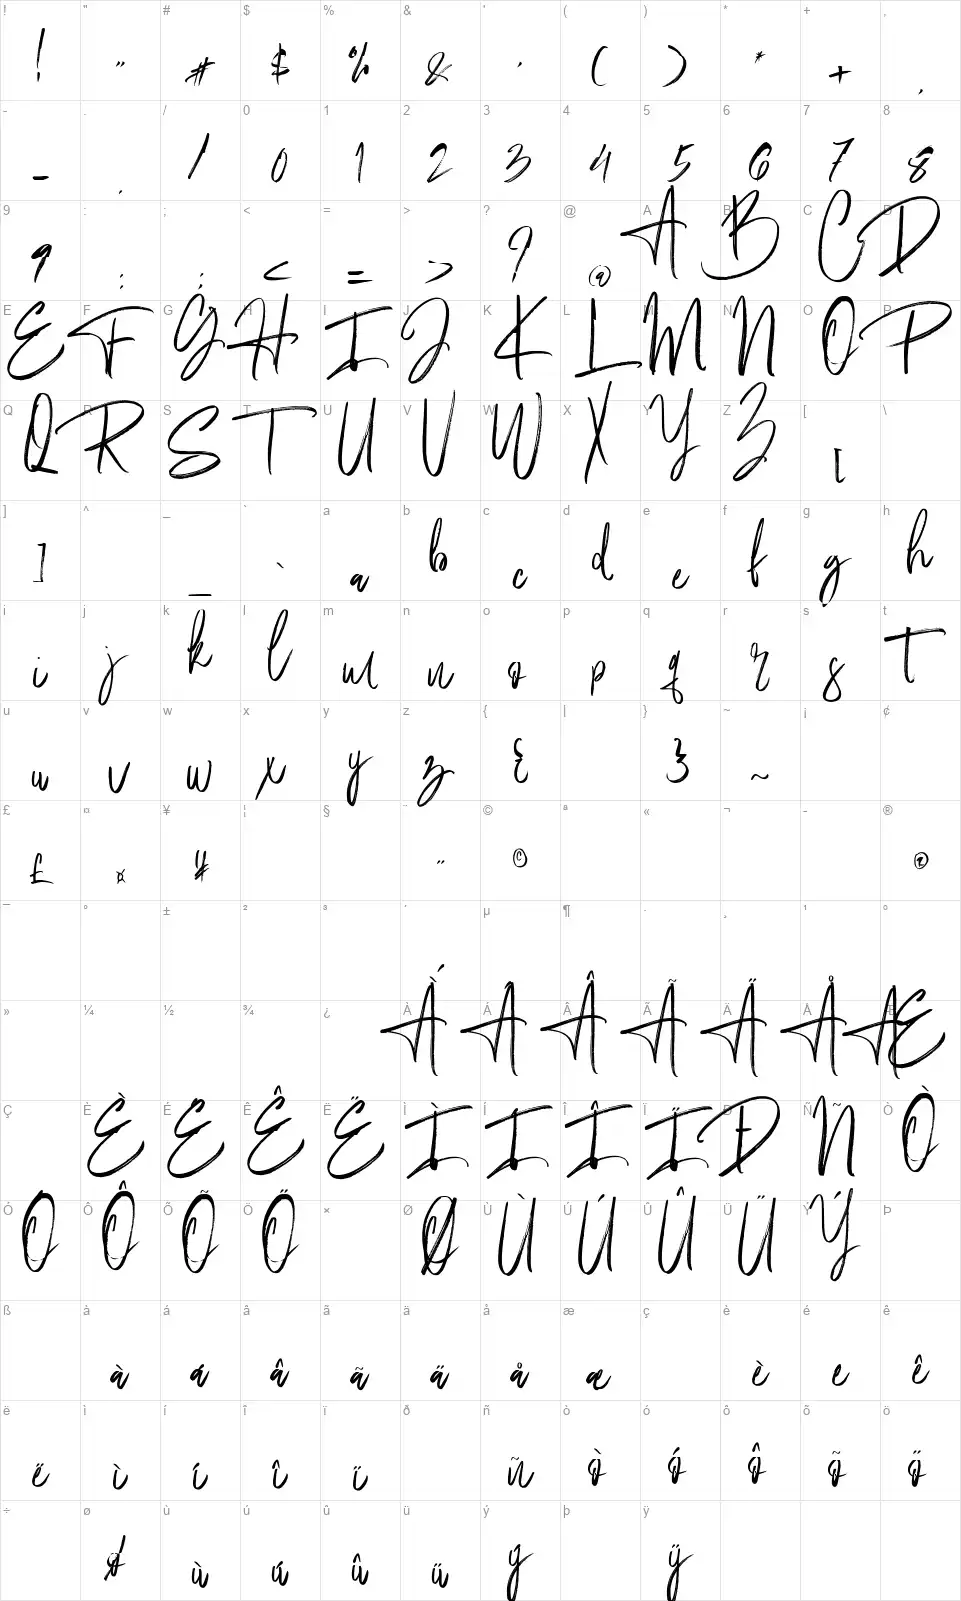 ! " # $ % & ' ( ) * + ,
! " # $ % & ' ( ) * + ,
- . / 0 1 2 3 4 5 6 7 8
- . / 0 1 2 3 4 5 6 7 8
9 : ; < = > ? @ A B C D
9 : ; < = > ? @ A B C D
E F G H I J K L M N O P
E F G H I J K L M N O P
Q R S T U V W X Y Z [ \
Q R S T U V W X Y Z [
] ^ _ ` a b c d e f g h
] _ ` a b c d e f g h
i j k l m n o p q r s t
i j k l m n o p q r s t
u v w x y z { | } ~ ¡ ¢
u v w x y z { } ~
£ ¤ ¥ ¦ § ¨ © ª « ¬ - ®
£ ¤ ¥ ¨ © ®
¯ ° ± ² ³ ´ µ ¶ · ¸ ¹ º
´
» ¼ ½ ¾ ¿ À Á Â Ã Ä Å Æ
À Á Â Ã Ä Å Æ
Ç È É Ê Ë Ì Í Î Ï Ð Ñ Ò
È É Ê Ë Ì Í Î Ï Ð Ñ Ò
Ó Ô Õ Ö × Ø Ù Ú Û Ü Ý Þ
Ó Ô Õ Ö Ø Ù Ú Û Ü Ý
ß à á â ã ä å æ ç è é ê
à á â ã ä å æ è é ê
ë ì í î ï ð ñ ò ó ô õ ö
ë ì í î ï ñ ò ó ô õ ö
÷ ø ù ú û ü ý þ ÿ
ø ù ú û ü ý ÿ